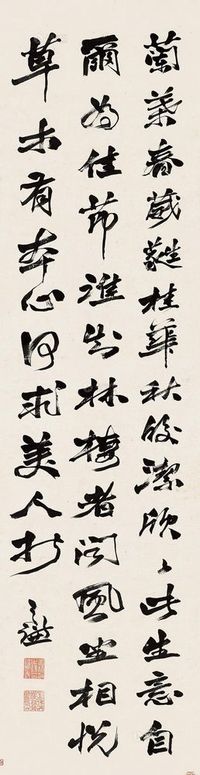 蘭葉春葳蕤桂華秋皎潔欣〻此生意自
爾為佳節誰知林棲者聞風坐相悅
草木有本心何求美人折
之謙